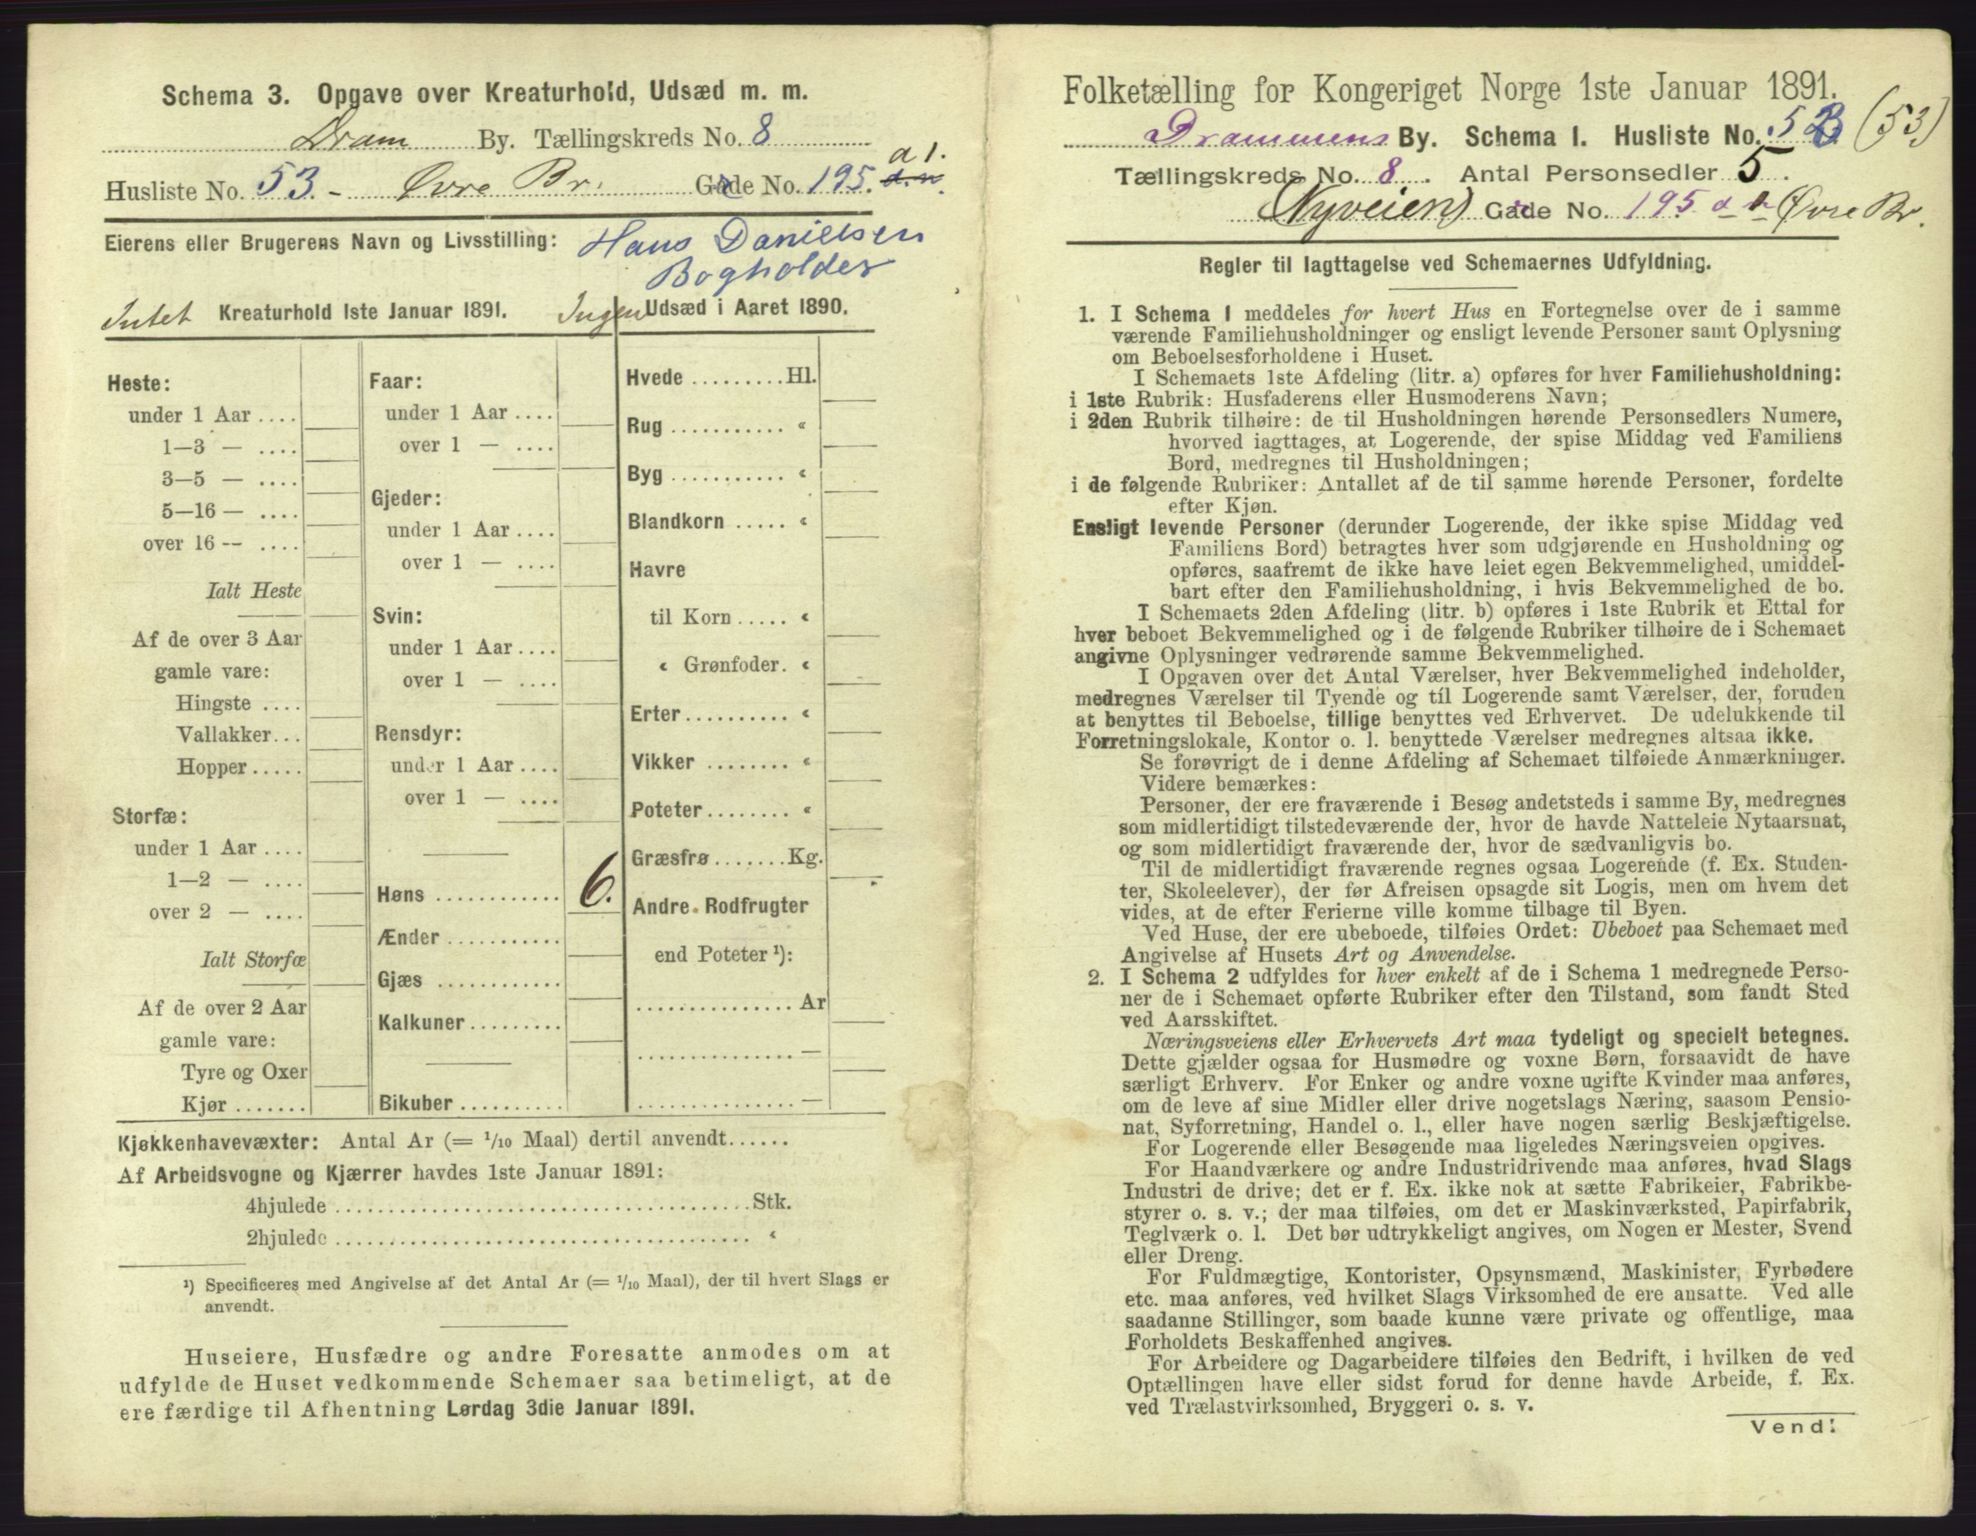 Schema 3. Opgave over Kreaturhold, Udsæd m. m.
Dram By. Tællingskreds No. 8
a 1.
Husliste No. 53. - Øvre Br. Gade No. 195.
Eierens eller Brugerens Navn og Livsstilling: Hans Danielsen
Bogholder
Intet Kreaturhold 1ste Januar 1891.
Heste:
under 1 Aar ....
1—3 — ....
3—5 — ....
5—16 — ....
over 16 -- ....
Ialt Heste
Af de over 3 Aar
gamle vare:
Hingste ....
Vallakker...
Hopper.....
Storfæ:
under 1 Aar ....
1—2 — ....
over 2 — ....
Ialt Storfæ
Af de over 2 Aar
gamle vare:
Tyre og Oxer
Kjør .......
Faar:
under 1 Aar ....
over 1 — ....
Gjeder:
under 1 Aar ....
over 1 — ....
Svin:
under 1 Aar ....
over 1 — ....
Rensdyr:
under 1 Aar ....
over 1 — ....
Høns ............ 6.
Ænder ...........
Gjæs ............
Kalkuner.........
Bikuber..........
Ingen Udsæd i Aaret 1890.
Hvede .........Hl.
Rug ........... «
Byg ........... «
Blandkorn ..... «
Havre
til Korn ..... «
« Grønfoder. «
Erter.......... «
Vikker ........ «
Poteter........ «
Græsfrø.......Kg.
Andre Rodfrugter
end Poteter ¹):
...............Ar
...............—
...............—
Kjøkkenhavevæxter: Antal Ar (= 1/10 Maal) dertil anvendt......
Af Arbeidsvogne og Kjærrer havdes 1ste Januar 1891:
4hjulede ........................................Stk.
2hjulede ........................................ «
¹) Specificeres med Angivelse af det Antal Ar (= 1/10 Maal), der til hvert Slags er
anvendt.
Huseiere, Husfædre og andre Foresatte anmodes om at
udfylde de Huset vedkommende Schemaer saa betimeligt, at de
ere færdige til Afhentning Lørdag 3die Januar 1891.
Folketælling for Kongeriget Norge 1ste Januar 1891.
Drammens By. Schema I. Husliste No. (53)
Tællingskreds No. 8. Antal Personsedler 5.
(Nyveien) Gade No. 195 a Øvre Br.
Regler til Iagttagelse ved Schemaernes Udfyldning.
1. I Schema I meddeles for hvert Hus en Fortegnelse over de i samme
værende Familiehusholdninger og ensligt levende Personer samt Oplysning
om Beboelsesforholdene i Huset.
I Schemaets 1ste Afdeling (litr. a) opføres for hver Familiehusholdning:
i 1ste Rubrik: Husfaderens eller Husmoderens Navn;
i 2den Rubrik tilhøire: de til Husholdningen hørende Personsedlers Numere,
hvorved iagttages, at Logerende, der spise Middag ved Familiens
Bord, medregnes til Husholdningen;
i de følgende Rubriker: Antallet af de til samme hørende Personer, fordelte
efter Kjøn.
Ensligt levende Personer (derunder Logerende, der ikke spise Middag ved
Familiens Bord) betragtes hver som udgjørende en Husholdning og
opføres, saafremt de ikke have leiet egen Bekvemmelighed, umiddel-
bart efter den Familiehusholdning, i hvis Bekvemmelighed de bo.
I Schemaets 2den Afdeling (litr. b) opføres i 1ste Rubrik et Ettal for
hver beboet Bekvemmelighed og i de følgende Rubriker tilhøire de i Schemaet
angivne Oplysninger vedrørende samme Bekvemmelighed.
I Opgaven over det Antal Værelser, hver Bekvemmelighed indeholder,
medregnes Værelser til Tyende og til Logerende samt Værelser, der, foruden
at benyttes til Beboelse, tillige benyttes ved Erhvervet. De udelukkende til
Forretningslokale, Kontor o. l. benyttede Værelser medregnes altsaa ikke.
Se forøvrigt de i denne Afdeling af Schemaet tilføiede Anmærkninger.
Videre bemærkes:
Personer, der ere fraværende i Besøg andetsteds i samme By, medregnes
som midlertidigt tilstedeværende der, hvor de havde Natteleie Nytaarsnat,
og som midlertidigt fraværende der, hvor de sædvanligvis bo.
Til de midlertidigt fraværende regnes ogsaa Logerende (f. Ex. Studen-
ter, Skoleelever), der før Afreisen opsagde sit Logis, men om hvem det
vides, at de efter Ferierne ville komme tilbage til Byen.
Ved Huse, der ere ubeboede, tilføies Ordet: Ubeboet paa Schemaet med
Angivelse af Husets Art og Anvendelse.
2. I Schema 2 udfyldes for hver enkelt af de i Schema 1 medregnede Perso-
ner de i Schemaet opførte Rubriker efter den Tilstand, som fandt Sted
ved Aarsskiftet.
Næringsveiens eller Erhvervets Art maa tydeligt og specielt betegnes.
Dette gjælder ogsaa for Husmødre og voxne Børn, forsaavidt de have
særligt Erhverv. For Enker og andre voxne ugifte Kvinder maa anføres,
om de leve af sine Midler eller drive nogetslags Næring, saasom Pensio-
nat, Syforretning, Handel o. l., eller have nogen særlig Beskjæftigelse.
For Logerende eller Besøgende maa ligeledes Næringsveien opgives.
For Haandværkere og andre Industridrivende maa anføres, hvad Slags
Industri de drive; det er f. Ex. ikke nok at sætte Fabrikeier, Fabrikbe-
styrer o. s. v.; der maa tilføies, om det er Maskinværksted, Papirfabrik,
Teglværk o. l. Det bør udtrykkeligt angives, om Nogen er Mester, Svend
eller Dreng.
For Fuldmægtige, Kontorister, Opsynsmænd, Maskinister, Fyrbødere
etc. maa anføres, ved hvilket Slags Virksomhed de ere ansatte. Ved alle
saadanne Stillinger, som baade kunne være private og offentlige, maa
Forholdets Beskaffenhed angives.
For Arbeidere og Dagarbeidere tilføies den Bedrift, i hvilken de ved
Optællingen have eller sidst forud for denne havde Arbeide, f. Ex.
ved Trælastvirksomhed, Bryggeri o. s. v.
Vend!